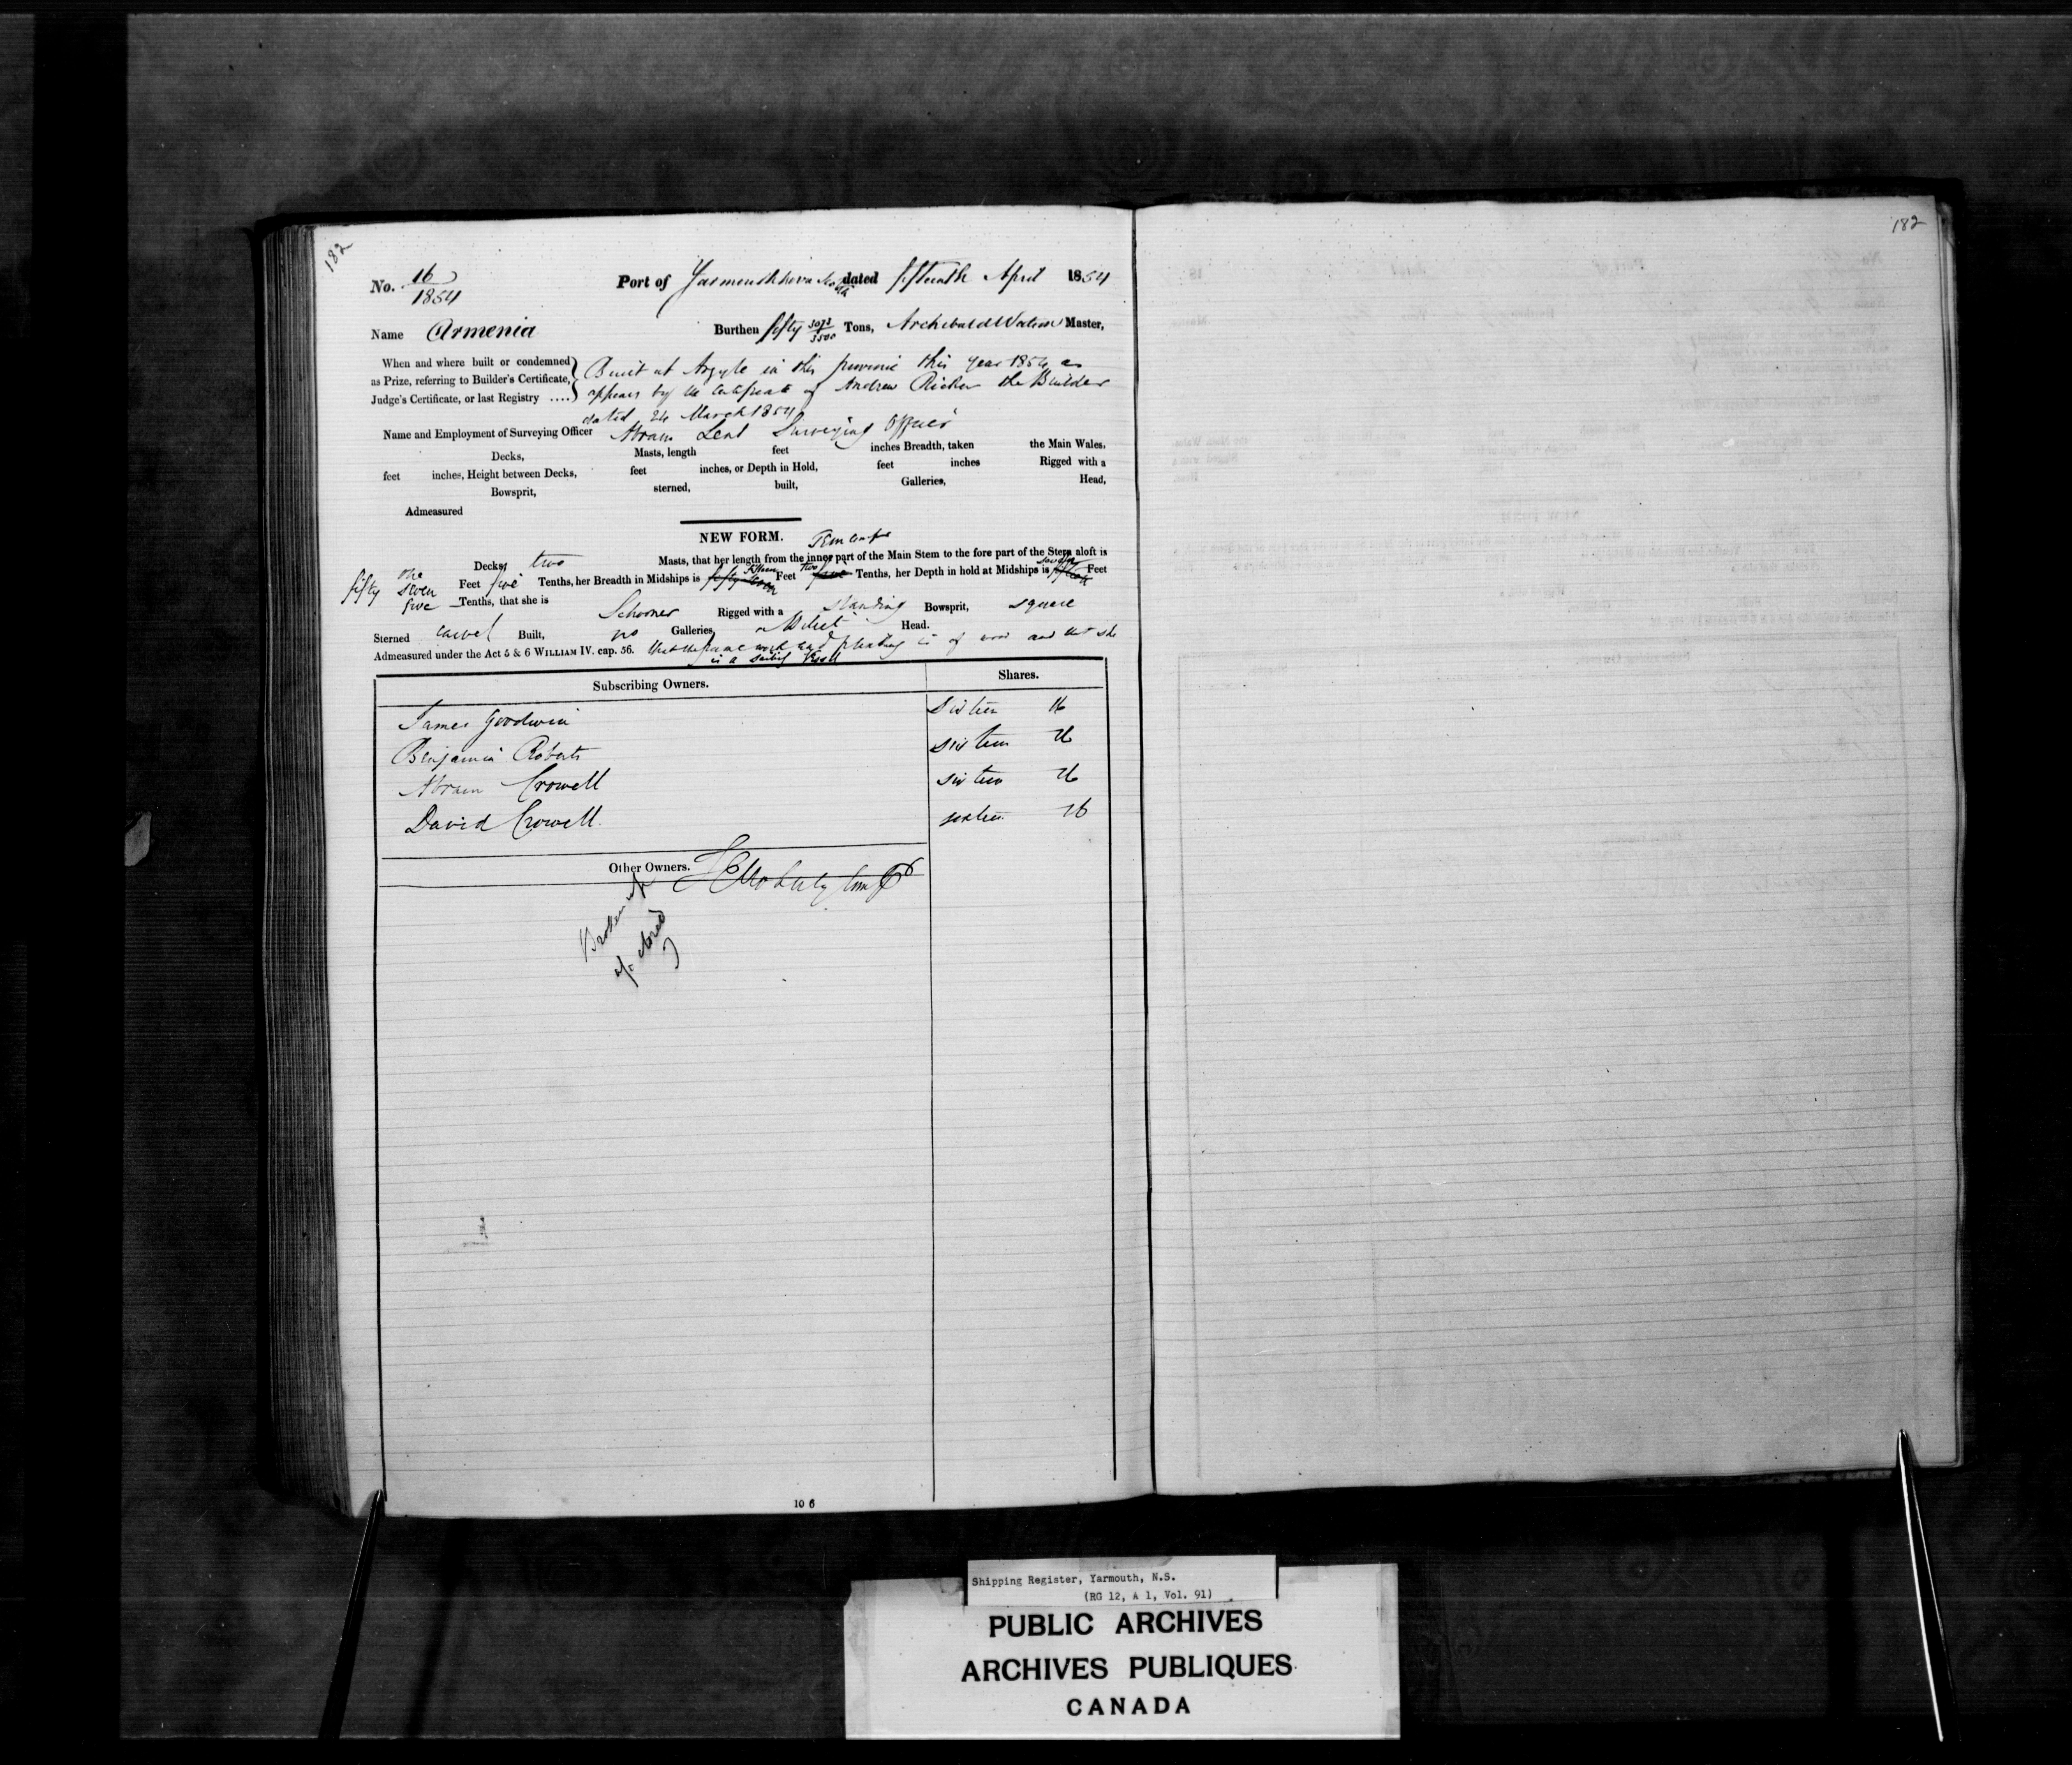 182
No. 16/1854 Port of Yarmouth Nova Scotia dated fifteenth April 1854
Name Armenia Burthen fifty 3071/3500 Tons, Archibald Watson Master,
When and where built or condemned as Prize, referring to Builder's Certificate, Judge's Certificate, or last Registry ....
Built at Argyle in this province this year 1854 as
appears by the Certificate of Andrew Ricker the Builder
dated 24 March 1854
Name and Employment of Surveying Officer Abram Lent Surveying Officer
Decks, Masts, length feet inches Breadth, taken the Main Wales.
feet inches, Height between Decks, feet inches, or Depth in Hold, feet inches Rigged with a
Bowsprit, sterned, built, Galleries, Head,
Admeasured
NEW FORM.
one Decks two Masts, that her length from the inner part of the Main Stem to the fore part of the Stern aloft is
fifty seven Feet five Tenths, her Breadth in Midships is fifty seven fifteen Feet two five Tenths, her Depth in hold at Midships is fifteen seven Feet
five Tenths, that she is Schooner Rigged with a standing Bowsprit, square
Sterned carvel Built, no Galleries, Billet Head.
Admeasured under the Act 5 & 6 WILLIAM IV. cap. 56. that the frame work and planking is of wood and that she
is a sailing Vessel
Subscribing Owners. Shares.
James Goodwin Sixteen 16
Benjamin Roberts sixteen 16
Abram Crowell sixteen 16
David Crowell. sixteen 16
Other Owners.
Broken up
closed
10 6
182
Shipping Register, Yarmouth, N.S.
(RG 12, A 1, Vol. 91)
PUBLIC ARCHIVES
ARCHIVES PUBLIQUES
CANADA